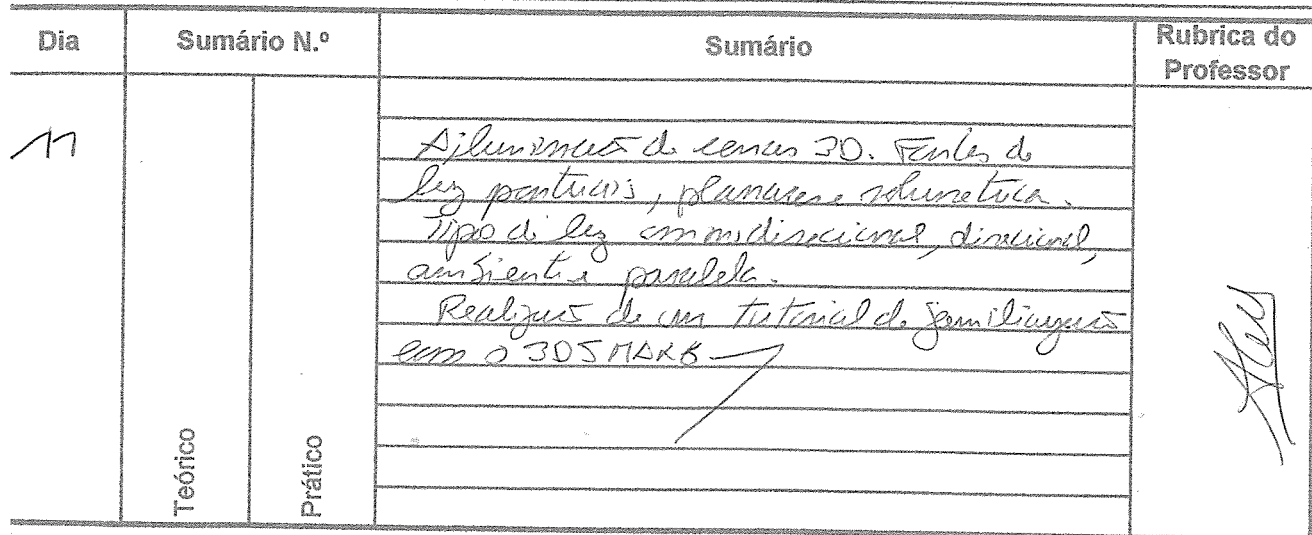 Dia Sumário N.º Sumário Rubrica do Professor
11
A iluminação de cenas 3D. Fontes de
luz pontuais, planares e volumetrica.
Tipo de luz ommidirecional, direcional,
ambiente e paralela.
Realização de um tutorial de familiarização
com o 3DS
Teórico
Prático